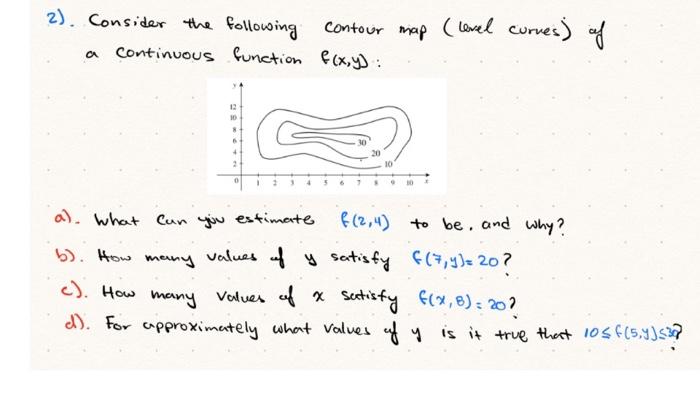 2). Consider the following contour map (level curves) of
a continuous function f(x,y):
y
12
10
8
6
4
2
0 1 2 3 4 5 6 7 8 9 10 x
30
20
10
a). What can you estimate f(2,4) to be, and why?
b). How many values of y satisfy f(7,y)=20?
c). How many values of x satisfy f(x,8)=20?
d). For approximately what values of y is it true that 10≤f(5,y)≤30?